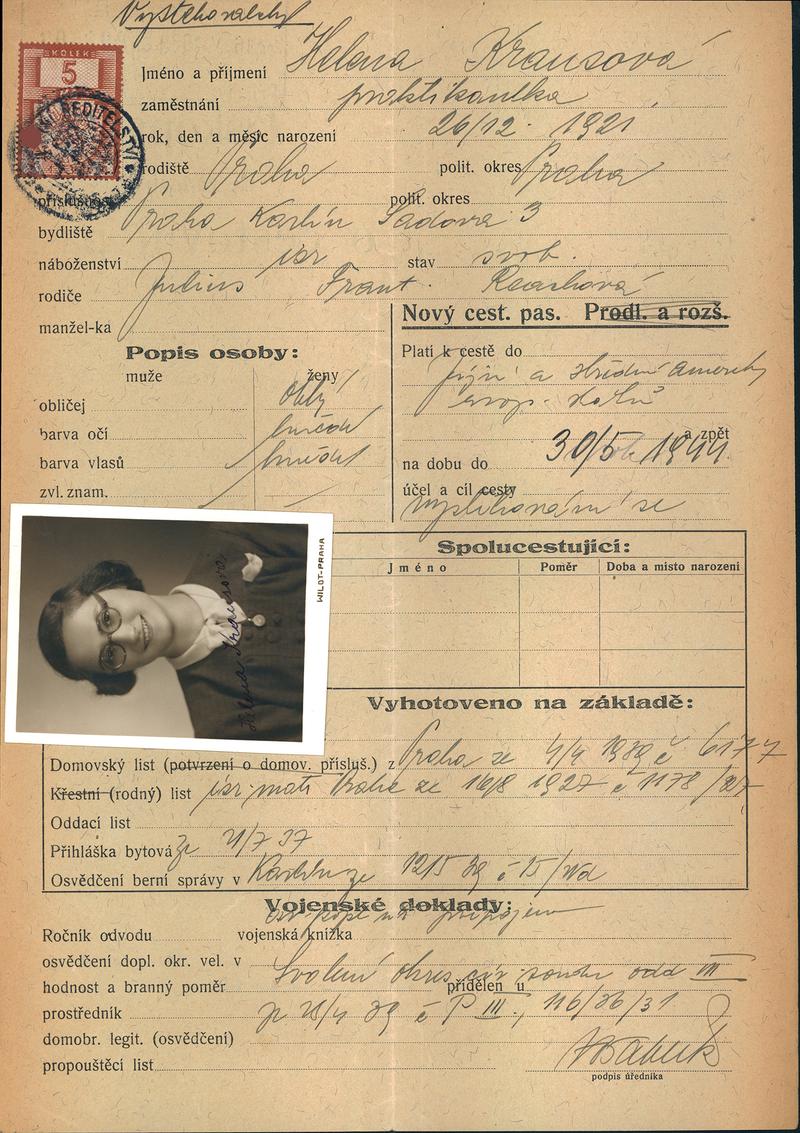 KOLEK
5
ŘEDITELSTVÍ
Jméno a příjmení Helena Krausová
zaměstnání praktikantka
rok, den a měsíc narození 26/12. 1921
rodiště Praha polit. okres Praha
přísluš polit. okres
bydliště Praha Karlín Sadova 3
náboženství isr stav svob.
rodiče Julius Frant.
manžel-ka
Nový cest. pas. Prodl. a rozš.
Popis osoby:
muže ženy
obličej oblý
barva očí hnědé
barva vlasů hnědé
zvl. znam.
Platí k cestě do
jižní a střední Ameriky
evrop. států
a zpět
na dobu do 30/5 1944
účel a cíl cesty
vystěhování se
WILDT-PRAHA
Helena Krausová
Spolucestující:
Jméno Poměr Doba a místo narození
Vyhotoveno na základě:
Domovský list (potvrzení o domov. přísluš.) z Praha ze 4/4 1939 č 61777
Křestní (rodný) list isr. mat. Praha ze 16/8 1927 č 1178/27
Oddací list
Přihláška bytová ze 21/7 37
Osvědčení berní správy v Karlín ze 12/5 39 č 15/
Vojenské doklady:
Ročník odvodu vojenská knížka
osvědčení dopl. okr. vel. v
hodnost a branný poměr přidělen u
Svolení okres civ soudu odd III
prostředník
28/4 39 č P III, 116/36/31
domobr. legit. (osvědčení)
propouštěcí list
podpis úředníka